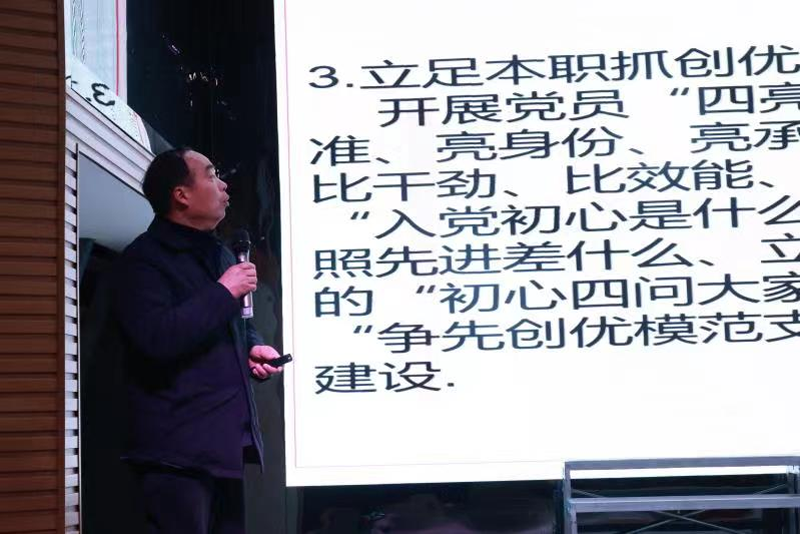 3.立足本职抓创优
开展党员“四亮
准、亮身份、亮承
比干劲、比效能、
“入党初心是什么
照先进差什么、立
的“初心四问大家
“争先创优模范支
建设.
3.